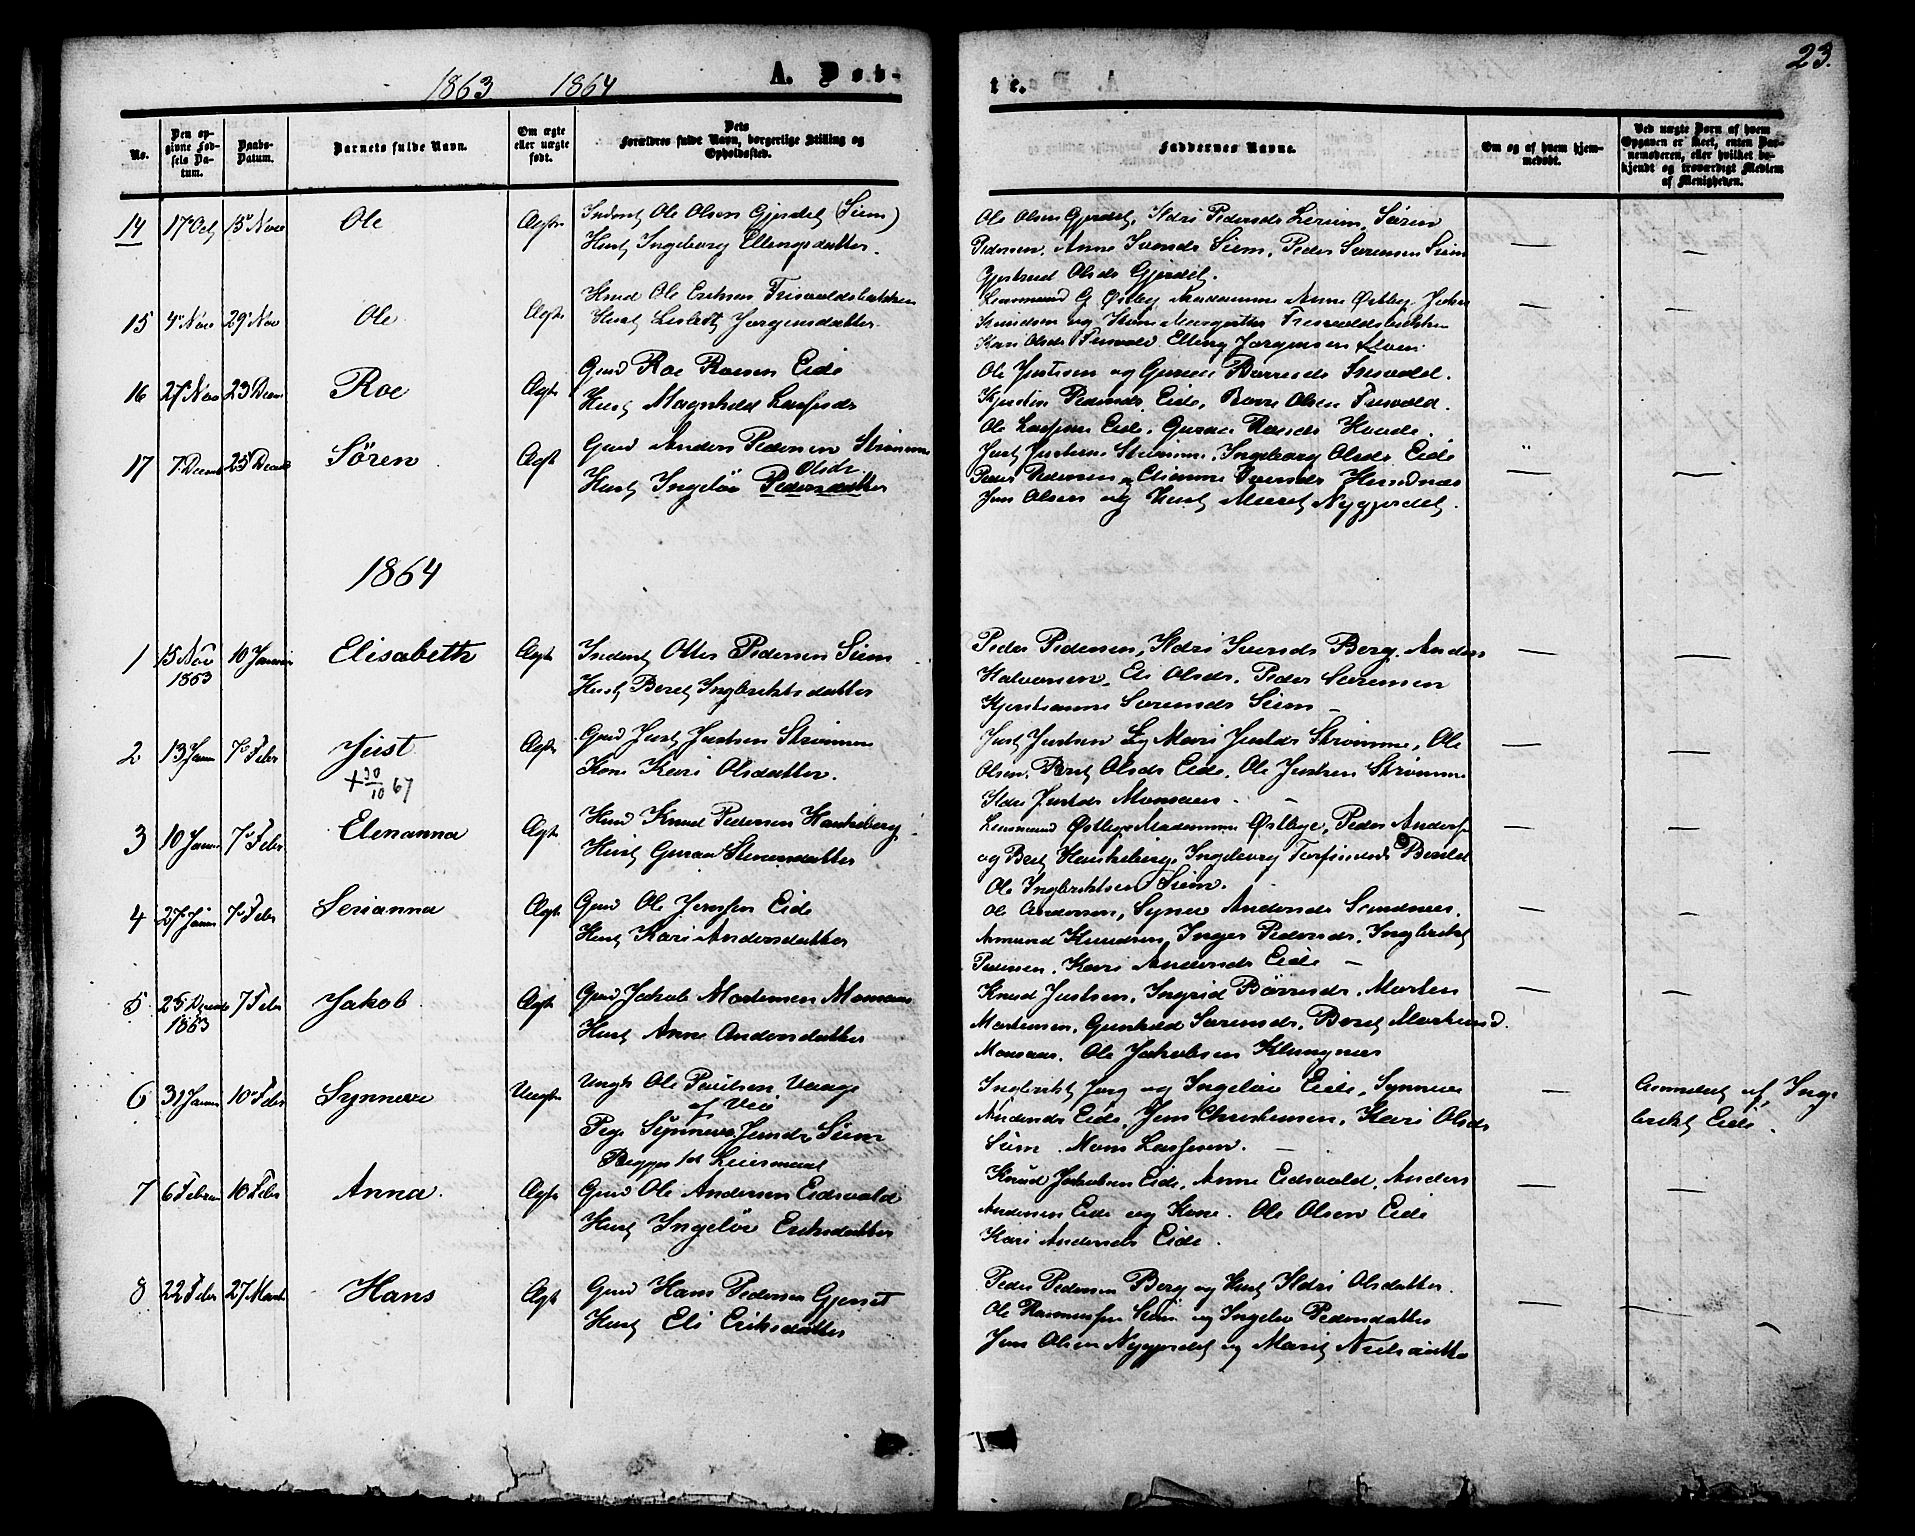 1863 1864 A. Døb-
te. 23.
No.
Den op-
givne Fød-
sels Da-
tum.
Daabs-
Datum.
Barnets fulde Navn.
Om ægte
eller uægte
født.
Dets
Forældres fulde Navn, borgerlige Stilling og
Opholdssted.
Faddernes Navne.
Om og af hvem hjem-
medøbt.
Ved uægte Børn af hvem
Opgaven er skeet, enten Bar-
nemoderen, eller hvilket be-
kjendt og troværdigt Medlem
af Menigheden.
14 17 Oct 15 Nov Ole Ægte Inderst Ole Olsen Gjerdet (Siem)
Hust Ingeborg Ellingsdatter.
Ole Olsen Gjerdet, Ildri Pedersd Lerium, Sören
Pedersen, Anne Svendsd Siem, Peder Sørensen Siem
Gjertrud Olsd Gjerdet. — —
15 4 Nov 29 Nov Ole Ægte Huusd Ole Eriksen Frisvoldsbakken
Hust Lisbeth Jørgensdatter.
Lensmand G Østby Madamme Anne Østbye. John
Knudsen og Kone Margrethe Frisvoldsbakken
Kari Olsd Frisvold. Elling Jørgensen Hoem — —
16 27 Nov 23 Decem Roe Ægte Gmd Roe Roesen Eide
Hust Magnhild Lassesd
Ole Justsen og Guraa Børresd Frisvold.
Kjersten Pedersd Eide, Børre Olsen Frisvold.
Ole Lassesen Eide, Guraa Roesd Houde.
17 7 Decemb 25 Decemb Sören Ægte Gmd Anders Pedersen Strömme
Olsdr.
Hust Ingelöv Pedersdatter
Just Justsen Strömme, Ingeborg Olsdr Eide "
Peder Pedersen, Elianna Iversdr Hændnæs
Jens Olsen og Hust Marit Nygjerdet. — —
1864
1 15 Nov
1863 10 Januar Elisabeth Ægte Inderst Otter Pedersen Siem
Hust Beret Ingbrektsdatter
Peder Pedersen, Ildri Svendsd Berg. Anders
Halvorsen, Eli Olsdr. Peder Sørensen
Kjerstianna Sørensdr Siem — — —
2 13 Janu 7 Febr Just
+ 30/10 67 Ægte Gmd Just Justsen Strömme
Kone Kari Olsdatter.
Just Justsen Eg Mari Justdr Strömme, Ole
Olsen, Brit Olsdr Eide, Ole Justsen Strömme
Ildri Justdr Monsaas. — — —
3 10 Janu 7 Febr Elenanna Ægte Huusd Knud Pedersen Haukeberg
Hust Guraa Steensdatter
Lensmand Østbye Madamme Østbye, Peder Anders
og Brit Haukeberg, Ingeborg Torfinsdr
Ole Ingbriktsen Siem. — —
4 27 Janu 7 Febr Serianna Ægte Gmd Ole Jenssen Eide
Hust Kari Andersdatter
Ole Andersen, Synev Andersdr Sundnæs.
Asmund Knudsen, Inger Pedersdr. Ingbrikt
Pedersen, Kari Andersdr Eide — — —
5 25 Decemb
1863 7 Febr Jakob Ægte Gmd Jakob Mortensen Monsaas
Hust Anne Andersdatter
Knud Justsen, Ingrid Börresdr. Morten
Mortensen, Gunhild Sørensdr. Beret Mortensd.
Monsaas. Ole Jakobsen Klungnæs — —
6 31 Janu 10 Febr Synneve Uægte Ungk Ole Paulsen Vaage
af Veö
Pige Synneve Jensdr Siem
Begges 1st Leiermaal
Ingbrikt Jørg og Ingelöv Eide, Synneve
Andersdr Eide, Jens Christensen, Kari Olsdr
Siem. Mons Lassesen. — —
Anmeldet af Inge
brikt Eide.
7 6 Februar 10 Febr Anna. Ægte Gmd Ole Andersen Eidsvold
Hust Ingelöv Eriksdatter
Knud Jakobsen Eide, Anne Eidsvold. Anders
Andersen Eide og Kone. Ole Olsen Eide
Kari Andersdr Eide. — —
8 22 Febr 27 Marts Hans Ægte Gmd Hans Pedersen Gjerset
Hust Eli Eriksdatter
Peder Pedersen Berg og Hust Ildri Olsdatter.
Ole Rasmussen Siem og Ingelöv Pedersdatter
Jens Olsen Nygjerdet og Marit Nielsdatter — —